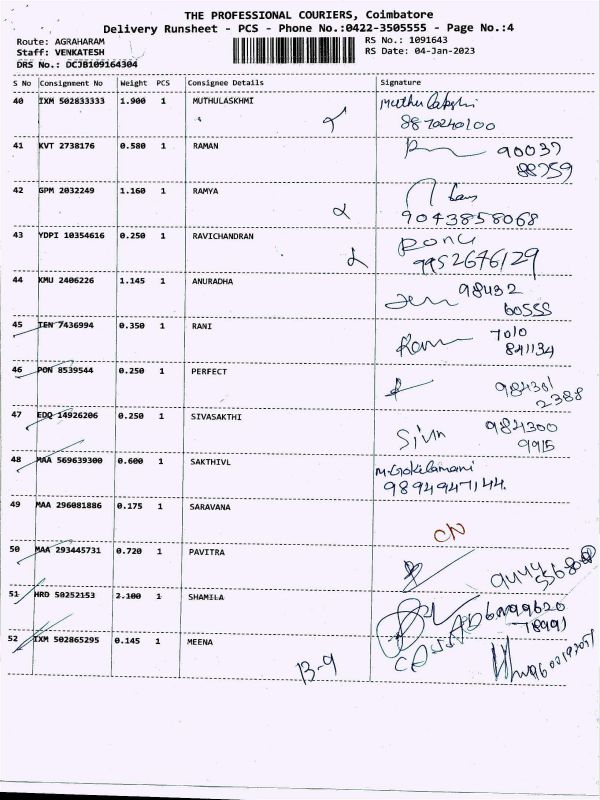 THE PROFESSIONAL COURIERS, Coimbatore
Delivery Runsheet - PCS - Phone No.:0422-3505555 - Page No.:4
Route: AGRAHARAM
RS No.: 1091643
Staff: VENKATESH
RS Date: 04-Jan-2023
DRS No.: DCJB109164304
S No Consignment No Weight PCS Consignee Details Signature
40 IXM 502833333 1.900 1 MUTHULASKHMI
8870240100
41 KVT 2738176 0.580 1 RAMAN 90037
88759
42 GPM 2032249 1.160 1 RAMYA
9043858068
43 YDPI 10354616 0.250 1 RAVICHANDRAN
9952676129
44 KMU 2406226 1.145 1 ANURADHA 98432
60555
45 TEN 7436994 0.350 1 RANI 7010
841134
46 PON 8539544 0.250 1 PERFECT 984301
2388
47 EDQ 14926206 0.250 1 SIVASAKTHI 984300
9915
48 MAA 569639300 0.600 1 SAKTHIVL M.Gokilamani
9894947144.
49 MAA 296081886 0.175 1 SARAVANA
CN
50 MAA 293445731 0.720 1 PAVITRA
51 HRD 50252153 2.100 1 SHAMILA
78991
52 IXM 502865295 0.145 1 MEENA
13-9